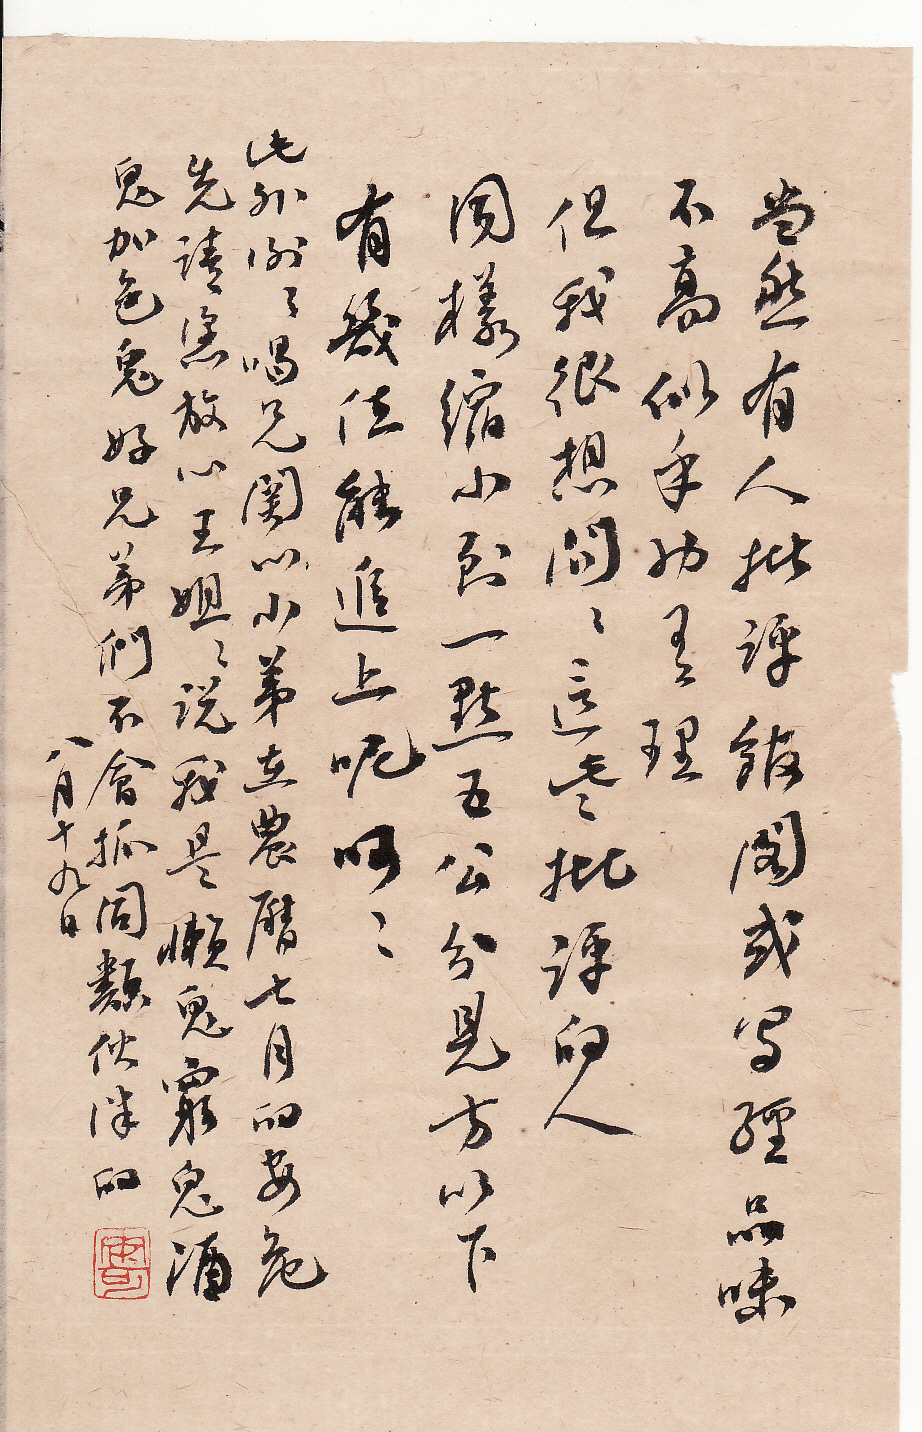 當然有人批評館閣或寫經品味
不高似乎極有理
但我很想問〻這些批評的人
同樣縮小到一點五公分見方以下
有幾位能追上呢呵〻
此外謝〻喝兄關心小弟在農曆七月的安危
先請您放心王姐〻說我是懶鬼窮鬼酒
鬼加色鬼好兄弟們不會抓同類伙伴的
八月十九日